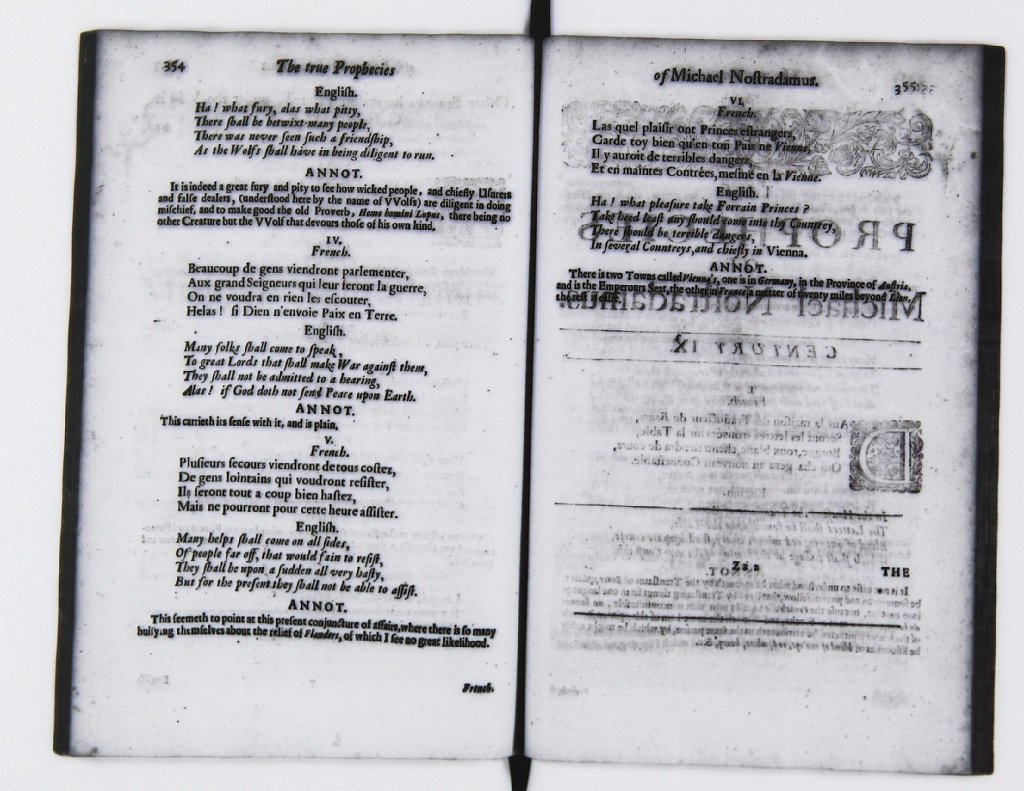 354
The true Prophecies
Engliſh.
Ha ! what fury, alas what pitty,
There ſhall be betwixt many people,
There was never ſeen ſuch a friendſhip,
As the Wolfs ſhall have in being diligent to run.
ANNOT.
It is indeed a great fury and pity to ſee how wicked people, and chiefly Uſurers
and falſe dealers, (underſtood here by the name of VVolfs) are diligent in doing
miſchief, and to make good the old Proverb, Homo homini Lupus, there being no
other Creature but the VVolf that devours thoſe of his own kind.
IV.
French.
Beaucoup de gens viendront parlementer,
Aux grand Seigneurs qui leur feront la guerre,
On ne voudra en rien les eſcouter,
Helas ! ſi Dien n'envoie Paix en Terre.
Engliſh.
Many folks ſhall come to ſpeak,
To great Lords that ſhall make War againſt them,
They ſhall not be admitted to a hearing,
Alas ! if God doth not ſend Peace upon Earth.
ANNOT.
This carrieth its ſenſe with it, and is plain.
V.
French.
Pluſieurs ſecours viendront de tous coſtez,
De gens lointains qui voudront reſiſter,
Ils ſeront tout a coup bien haſtez,
Mais ne pourront pour cette heure aſſiſter.
Engliſh.
Many helps ſhall come on all ſides,
Of people far off, that would fain to reſiſt,
They ſhall be upon a ſudden all very haſty,
But for the preſent they ſhall not be able to aſſiſt.
ANNOT.
This ſeemeth to point at this preſent conjuncture of affairs, where there is ſo many
buiſying themſelves about the relief of Flanders, of which I ſee no great likelihood.
French.
of Michael Noſtradamus.
355
VI.
French.
Las quel plaiſir ont Princes eſtrangers,
Garde toy bien qu'en ton Païs ne Vienne,
Il y auroit de terribles dangers,
Et en maintes Contrées, meſme en la Vienne.
Engliſh.
Ha ! what pleaſure take Forrain Princes ?
Take heed leaſt any ſhould come into thy Countrey,
There ſhould be terrible dangers,
In ſeveral Countreys, and chiefly in Vienna.
ANNOT.
There is two Towns called Vienna's, one is in Germany, in the Province of Auſtria,
and is the Emperours Seat, the other in France a matter of twenty miles beyond Lion,
the reſt is eaſie.
PROPHETIES
Michael Noſtradamus.
CENTURY IX.
I.
French.
Dans la maiſon du Traducteur de Boure,
Seront les lettres trouvées ſur la Table,
Borgne, roux blanc, chenu tiendra de cours,
Qui changera au nouveau Conneſtable.
Engliſh.
Zz 2
THE